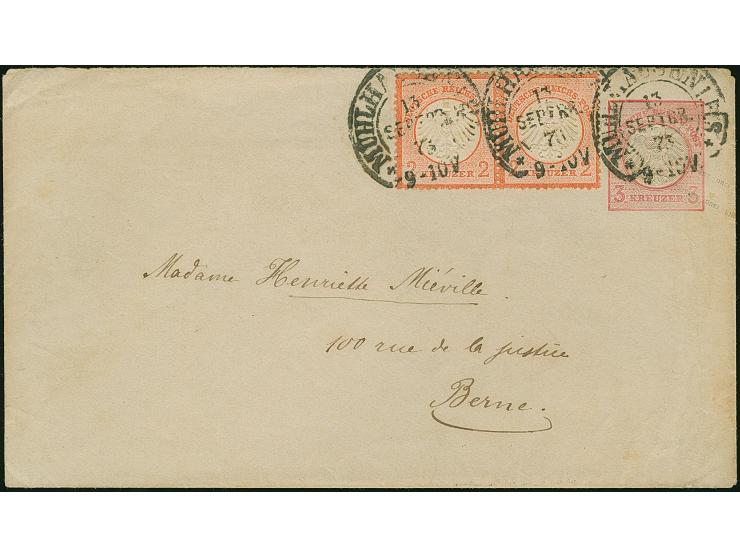 13
SEPTBR.
73
9-10V
2 KREUZER 2
13
SEPTBR.
7
9-10V
2 KREUZER 2
13
SEPTBR.
73
3 KREUZER 3
Madame Henriette Miéville.
100 rue de la justice
Berne.